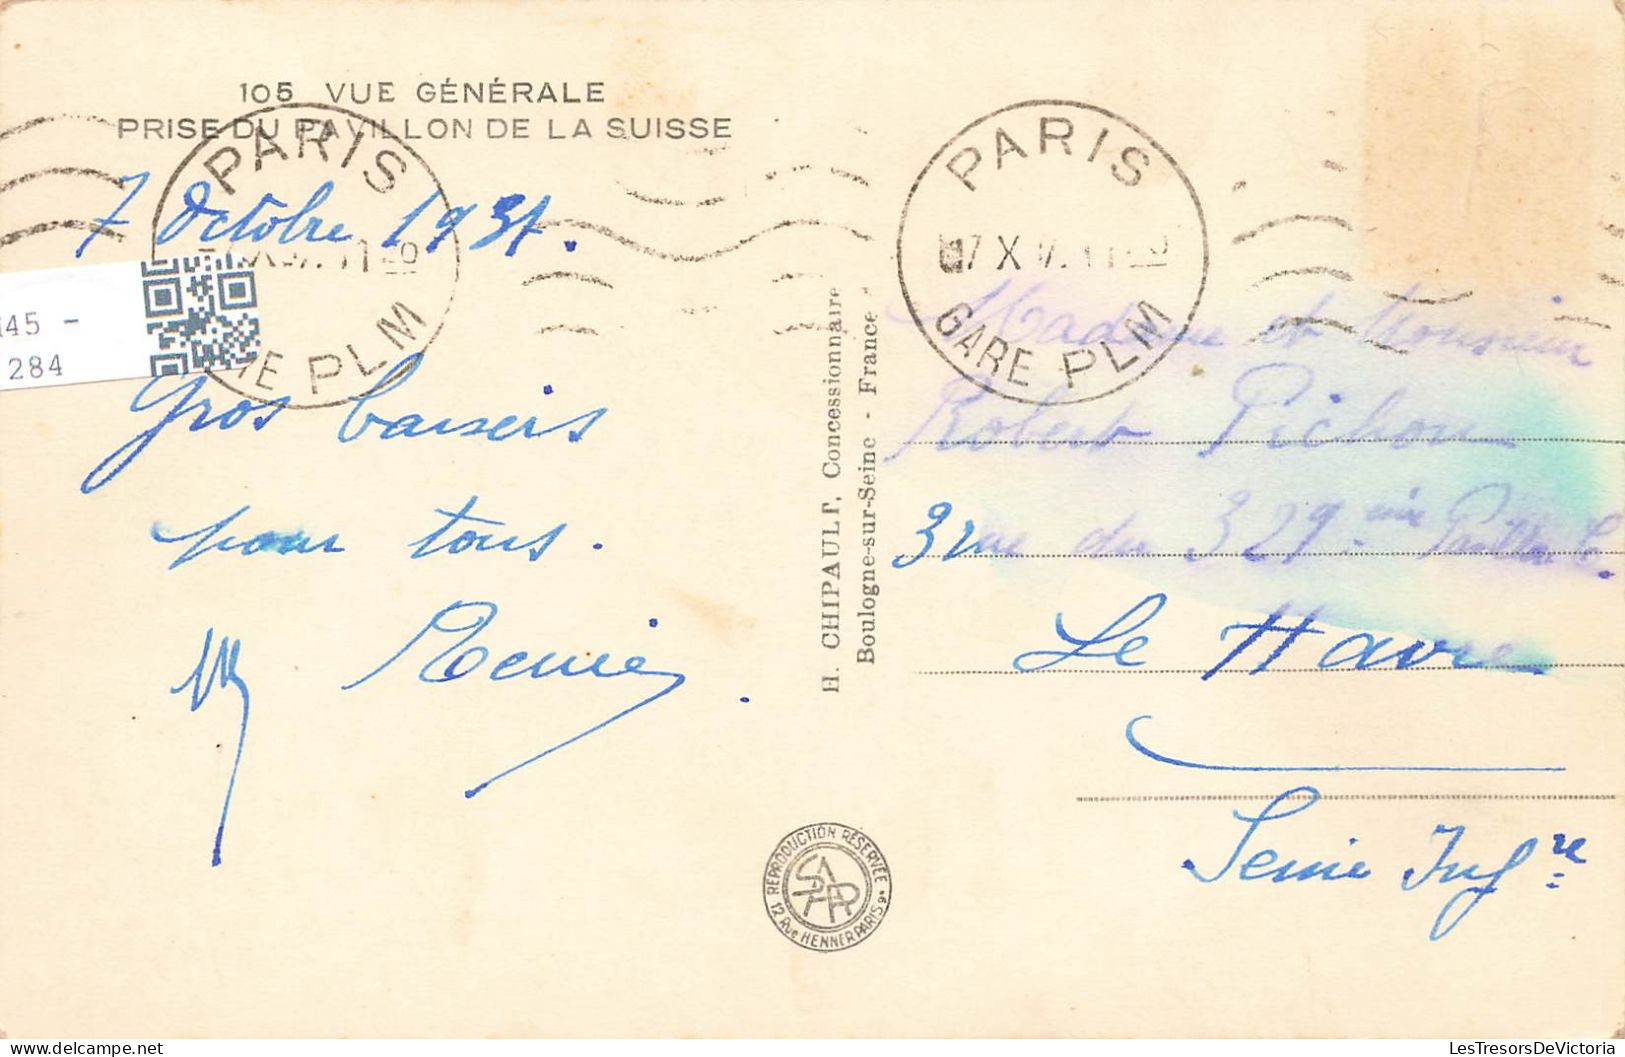 105 VUE GÉNÉRALE
PRISE DU PAVILLON DE LA SUISSE
PARIS
GARE PLM
7 Octobre 1937.
145 -
284
Gros baisers
pour tous.
H. CHIPAULT, Concessionnaire
Boulogne-sur-Seine - France
PARIS
7 X
GARE PLM
Madame et Monsieur
Robert Pichon
3 rue du 329 ème
Le Havre
Seine Infre
REPRODUCTION RÉSERVÉE
SAPHR
12 Rue HENNER PARIS 9e
delcampe.net
LesTresorsDeVictoria